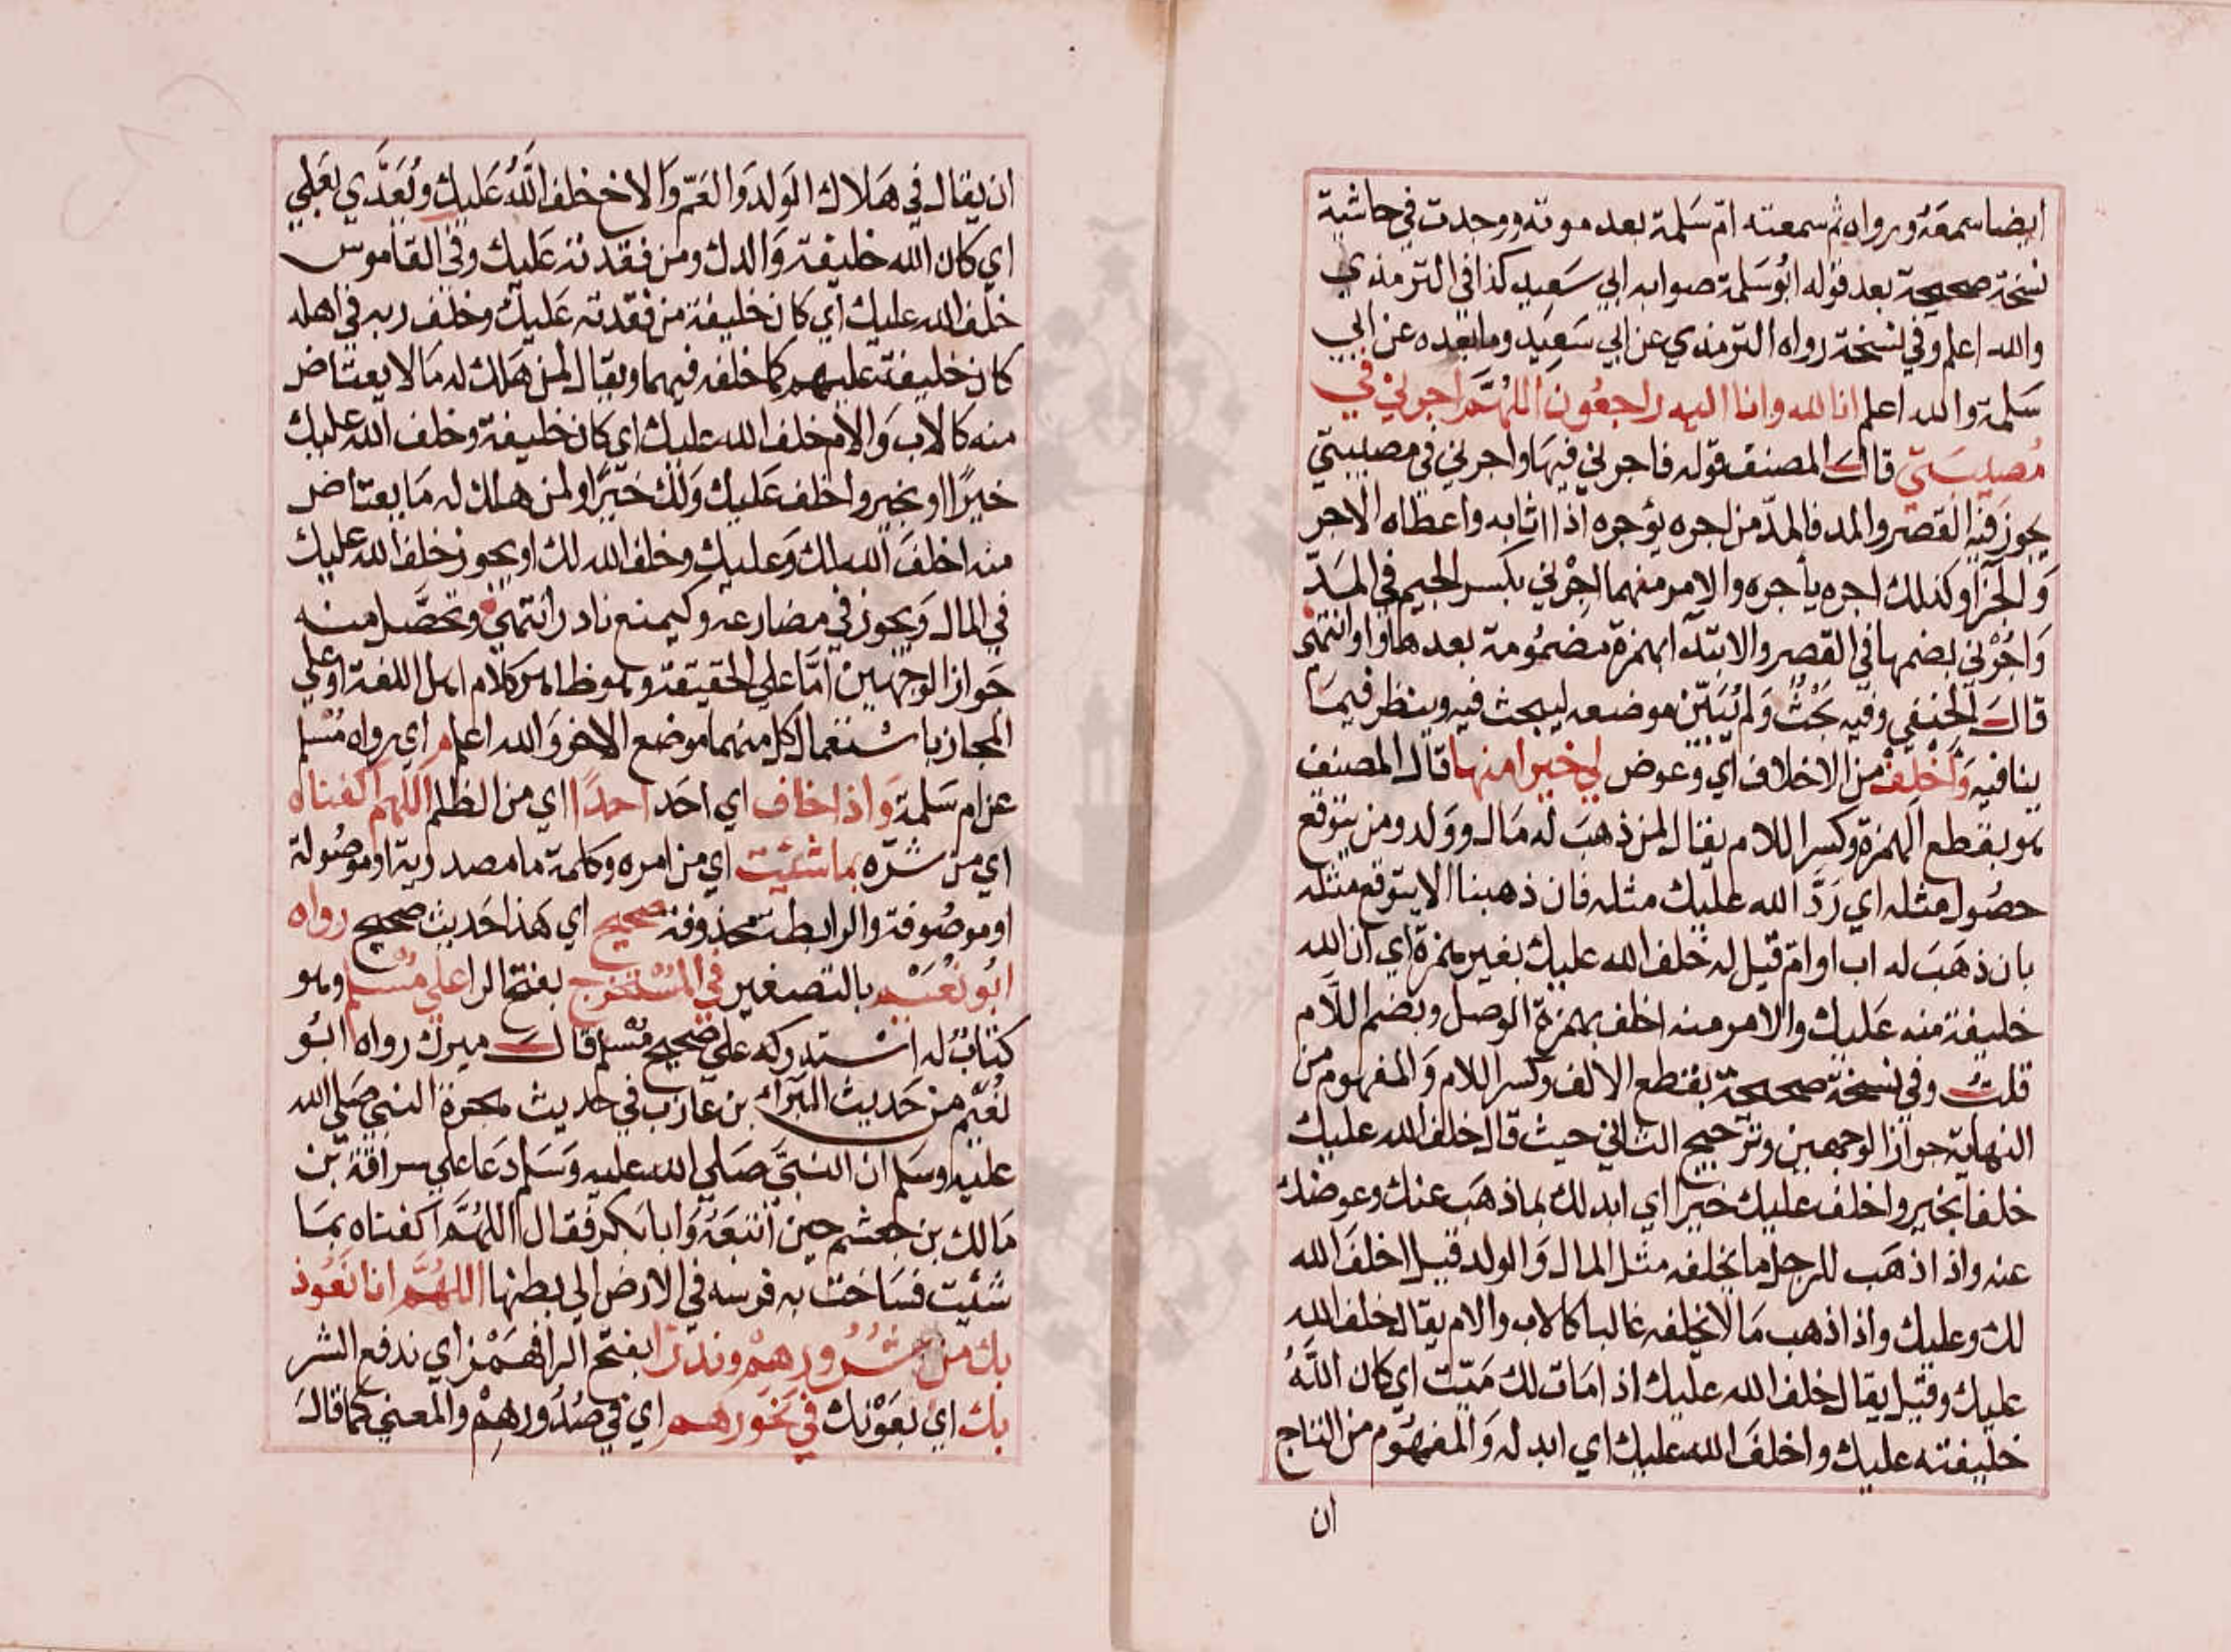 ايضا سمعه ورواه ثم سمعته ام سلمة بعد موته ووجدت في حاشية
نسخة صحيحة بعد قوله ابو سلمة صوابه ابي سعيد كذا في الترمذي
والله اعلم وفي نسخة رواه الترمذي عن ابي سعيد وما بعده عن ابي
سلمة والله اعلم انا لله وانا اليه راجعون اللهم اجرني في
مصيبتي قال المصنف قوله فاجرني فيها واجرني في مصيبتي
يجوز فيه القصر والمد فالمد من اجره يؤجره اذا اثابه واعطاه الاجر
والجزا وكذلك اجره يأجره والامر منهما اجرني بكسر الجيم في المد
واجرني بضمها في القصر والابتدا بهمزة مضمومة بعدها واو انتهى
قال الحنفي وفيه بحث ولم يبين موضعه ليبحث فيه وينظر فيما
ينافيه واخلف من الاخلاف اي وعوض لي خيرا منها قال المصنف
هو بقطع الهمزة وكسر اللام يقال لمن ذهب له مال وولد ومن يتوقع
حصول مثله اي رد الله عليك مثله فان ذهب ما لا يتوقع مثله
بان ذهب له اب او ام قيل له خلف الله عليك بغير همزة اي ان الله
خليفة منه عليك والامر منه اخلف بهمزة الوصل وبضم اللام
قلت وفي نسخة صحيحة بقطع الالف وكسر اللام والمفهوم من
النهاية جواز الوجهين وترجيح الثاني حيث قال خلف الله عليك
خلفا بخير واخلف عليك خيرا اي ابدلك بما ذهب عنك وعوضك
عنه واذا ذهب للرجل ما يخلفه مثل المال والولد قيل اخلف الله
لك وعليك واذا ذهب ما لا يخلفه غالبا كالاب والام يقال خلف الله
عليك وقيل يقال خلف الله عليك اذا مات لك ميت اي كان الله
خليفته عليك واخلف الله عليك اي ابدله والمفهوم من التاج
ان
ان يقال في هلاك الولد والعم والاخ خلف الله عليك ويعدي بعلى
اي كان الله خليفة والدك ومن فقدته عليك وفي القاموس
خلف الله عليك اي كان خليفة من فقدته عليك وخلف ربه في اهله
كان خليفة عليهم كما خلفه فيهما ويقال لمن هلك له ما لا يعتاض
منه كالاب والام خلف الله عليك اي كان خليفة وخلف الله عليك
خيرا او بخير واخلف عليك ولك خيرا ولمن هلك له ما يعتاض
منه اخلف الله لك وعليك وخلف الله لك او يجوز خلف الله عليك
في المال ويجوز في مضارعه وكيمنع نادر انتهى وتحصل منه
جواز الوجهين اما على الحقيقة وهو ظاهر كلام اهل اللغة او على
المجاز باستعمال كل منهما موضع الاخر والله اعلم م اي رواه مسلم
عن ام سلمة واذا خاف اي احد احدا اي من الظلم اللهم اكفناه
اي من شره بما شئت اي من امره وكلمة ما مصدرية او موصولة
او موصوفة والرابطة محذوفة صحيح اي هذا حديث صحيح رواه
ابو نعيم بالتصغير في المستخرج بفتح الرا على مسلم وهو
كتاب له استدركه على صحيح مسلم قال ميرك رواه ابو
نعيم من حديث البراء بن عازب في حديث هجرة النبي صلى الله
عليه وسلم ان النبي صلى الله عليه وسلم دعا على سراقة بن
مالك بن جعشم حين اتبعه وابا بكر فقال اللهم اكفناه بما
شئت فساخت به فرسه في الارض الى بطنها اللهم انا نعوذ
بك من شرورهم وندرا بفتح الرا فهمز اي ندفع الشر
بك اي بعونك في نحورهم اي في صدورهم والمعنى كما قال